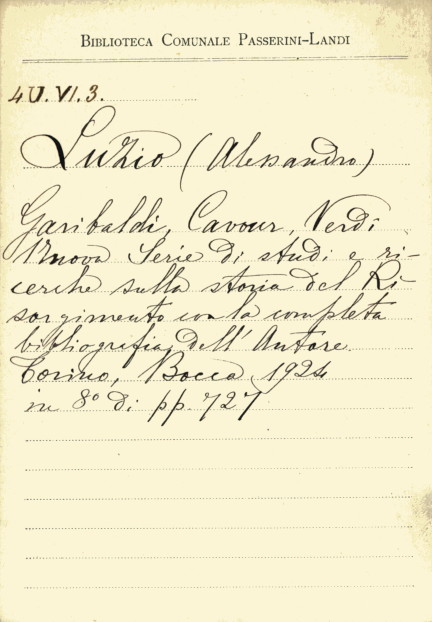 BIBLIOTECA COMUNALE PASSERINI-LANDI
4U.VI.3.
Luzio (Alessandro)
Garibaldi, Cavour, Verdi
Nuova Serie di studi e ri-
cerche sulla storia del Ri-
sorgimento con la completa
bibliografia dell'Autore
Torino, Bocca 1924
in 8° di pp. 727